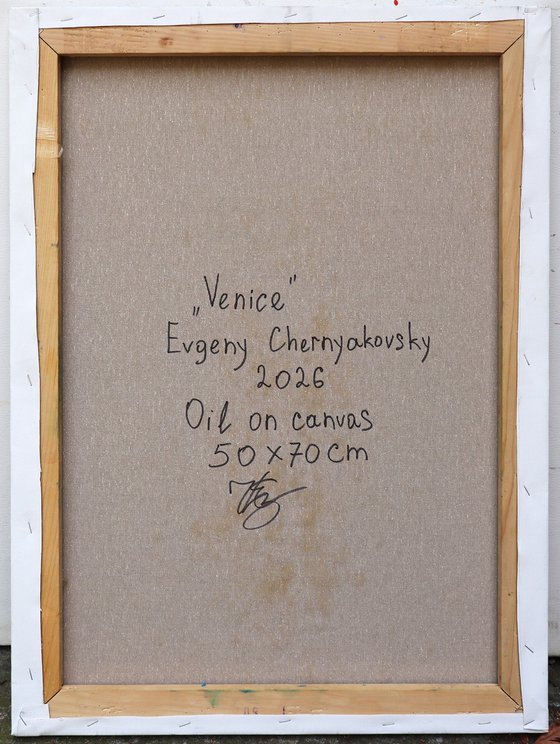 „Venice"
Evgeny Chernyakovsky
2026
Oil on canvas
50x70cm